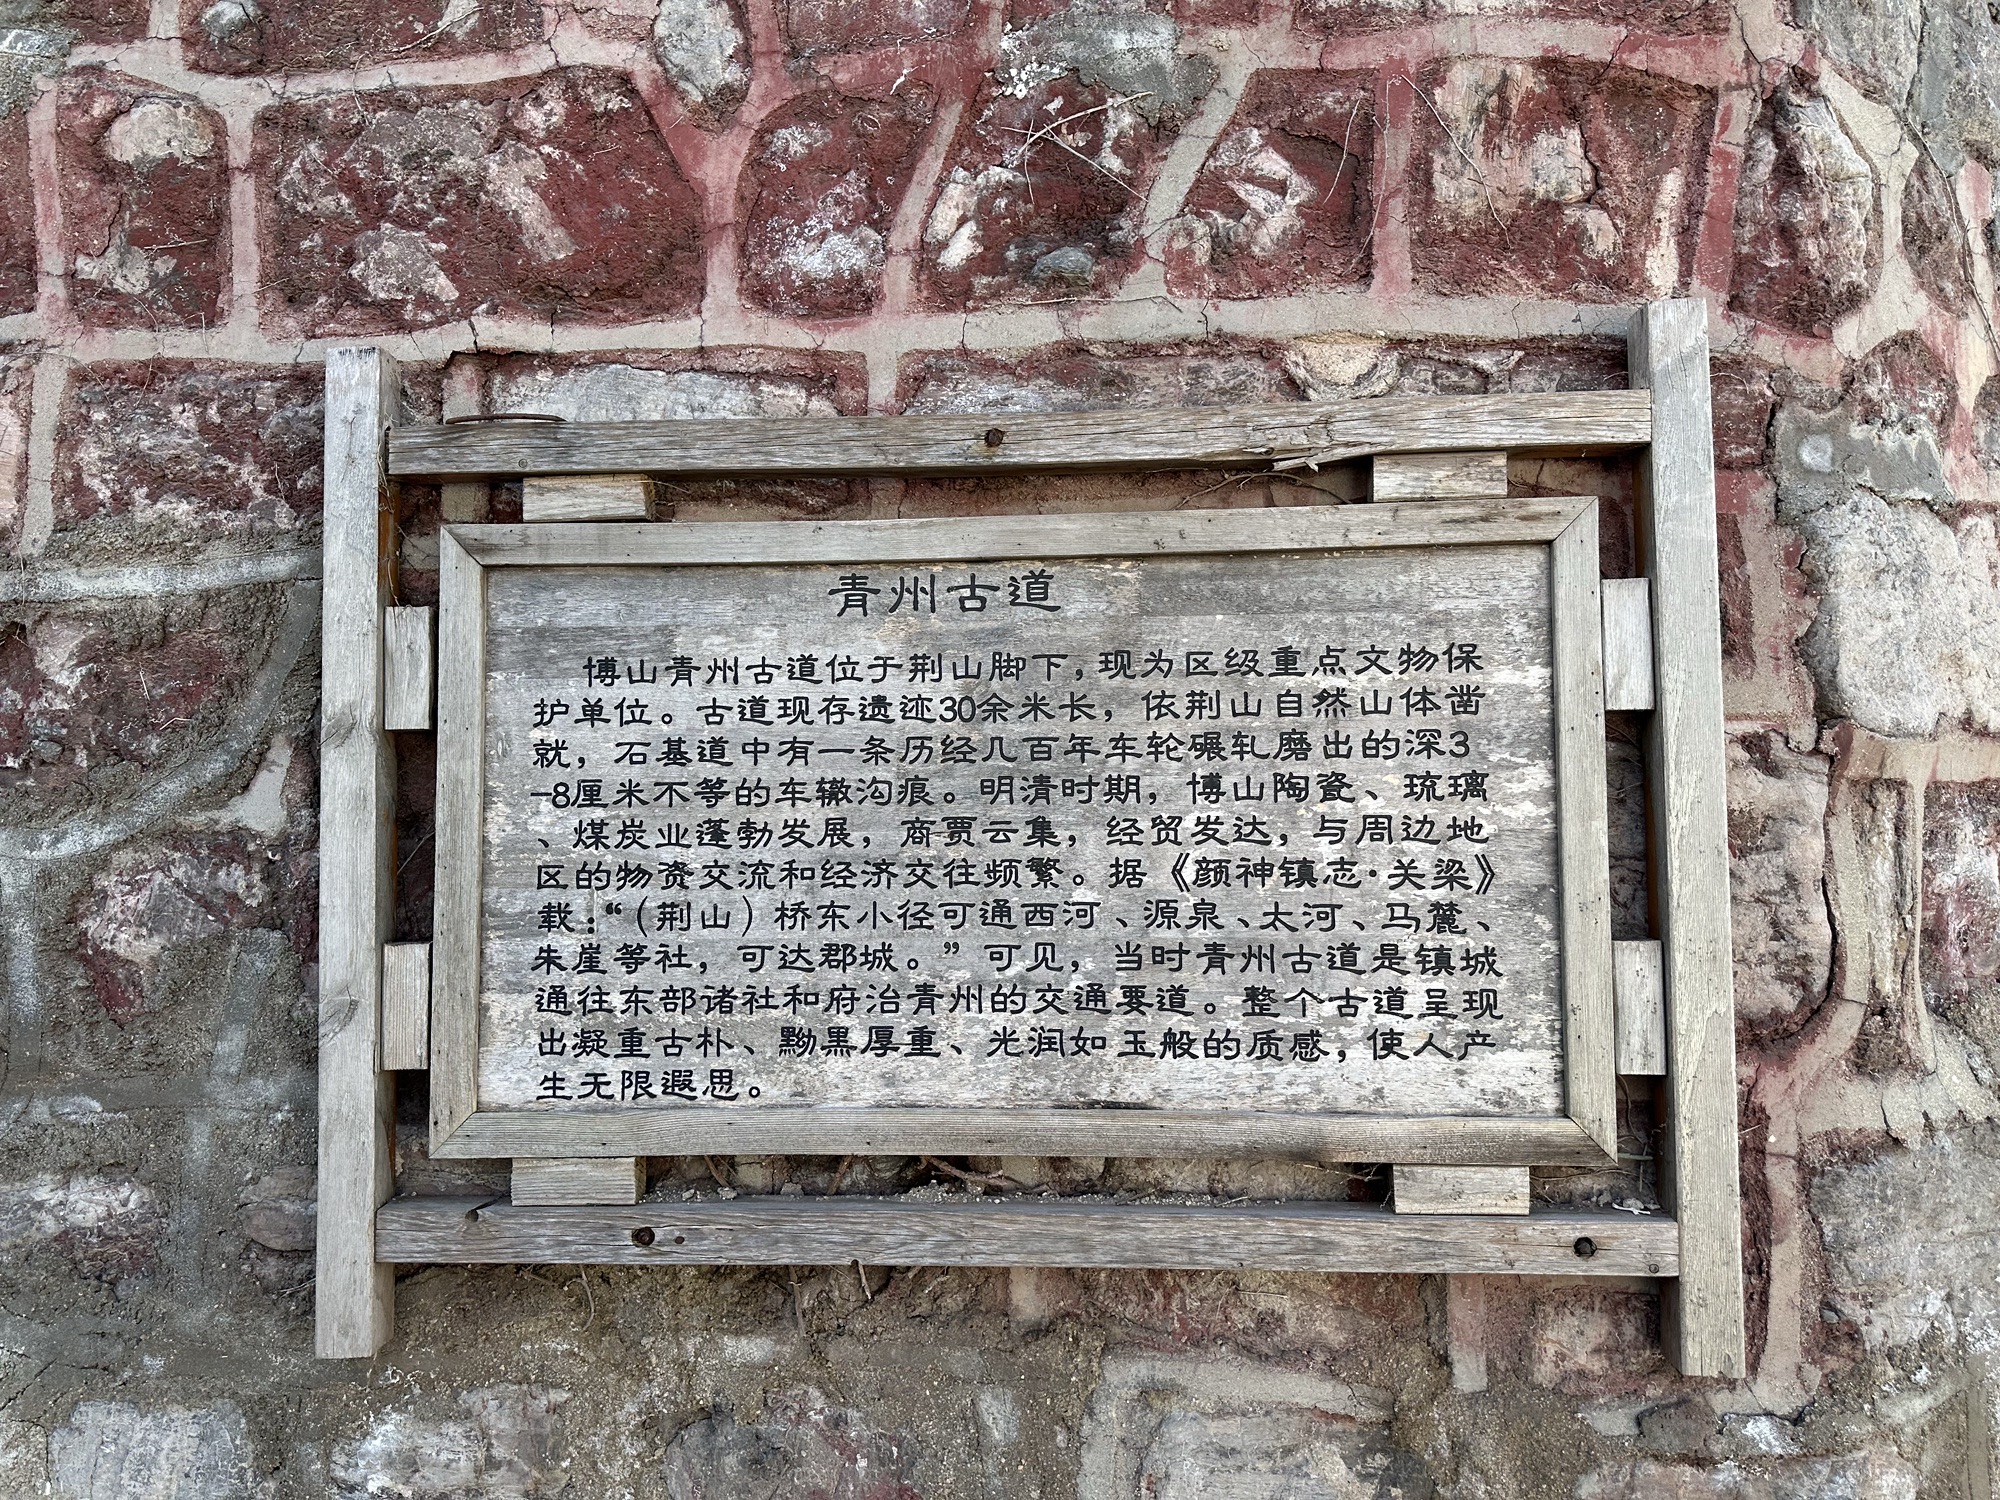 青州古道
博山青州古道位于荆山脚下,现为区级重点文物保
护单位。古道现存遗迹30余米长，依荆山自然山体凿
就，石基道中有一条历经几百年车轮碾轧磨出的深3
-8厘米不等的车辙沟痕。明清时期，博山陶瓷、琉璃
、煤炭业蓬勃发展，商贾云集，经贸发达，与周边地
区的物资交流和经济交往频繁。据《颜神镇志·关梁》
载：“（荆山）桥东小径可通西河、源泉、太河、马麓、
朱崖等社，可达郡城。”可见，当时青州古道是镇城
通往东部诸社和府治青州的交通要道。整个古道呈现
出凝重古朴、黝黑厚重、光润如玉般的质感，使人产
生无限遐思。